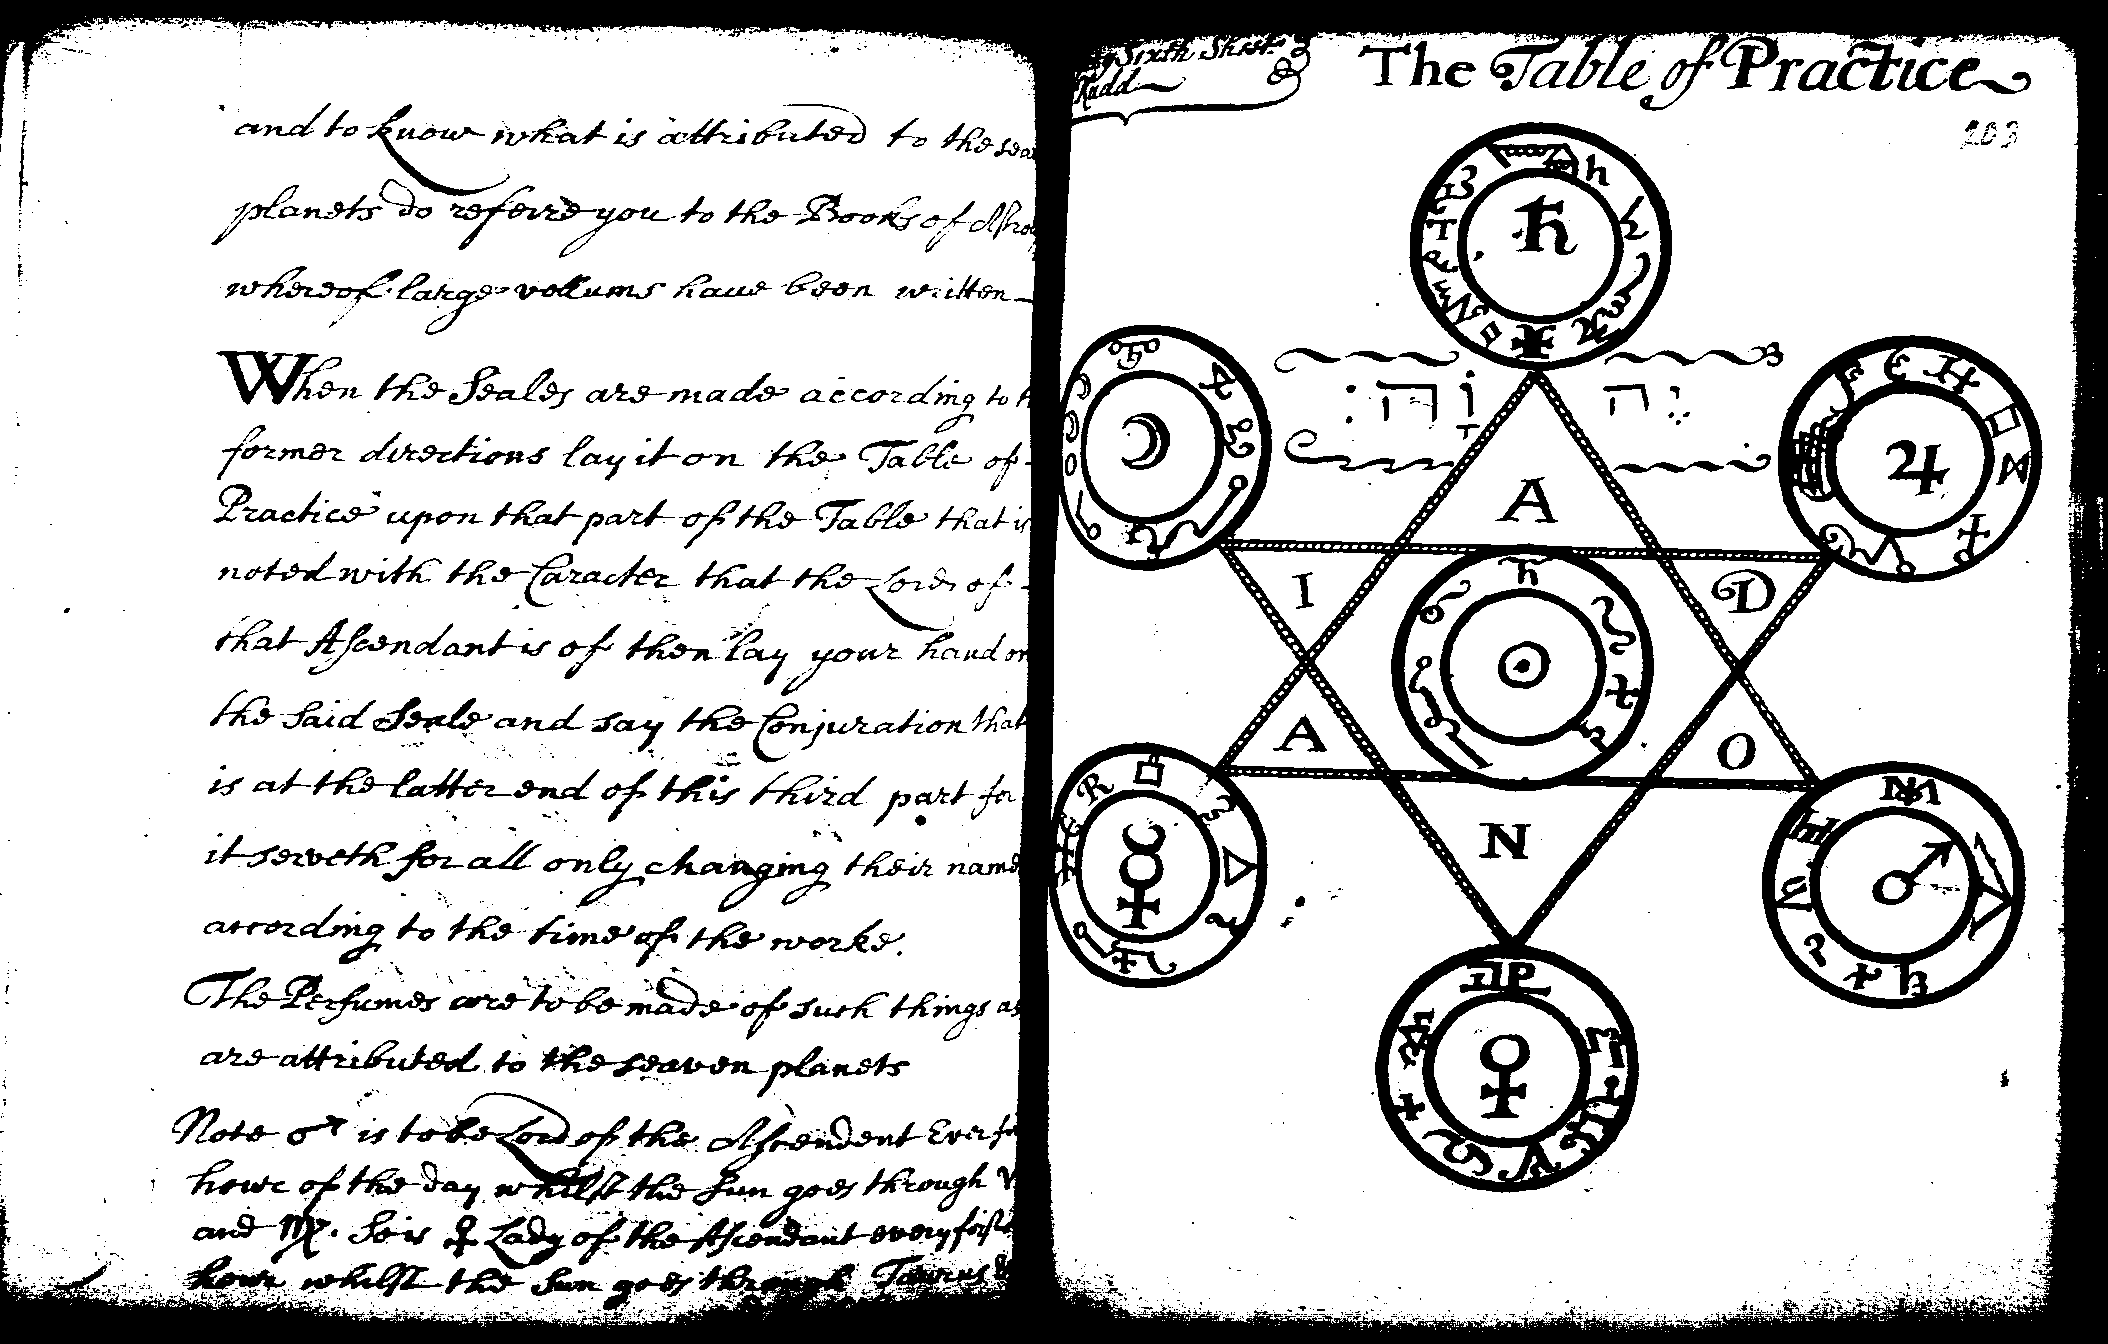 and to know what is attributed to the
planets do referre you to the Books of
whereof large vollums have been written
When the Seales are made according to
former directions lay it on the Table of
Practice upon that part of the Table that is
noted with the Caracter that the Lord of
that Ascendant is of then lay your hand on
the said Seale and say the Conjuration that
is at the latter end of this third part for
it serveth for all only changing their name
according to the time of the worke.
The Perfumes are to be made of such things as
are attributed to the seaven planets
Note ♂ is to be Lord of the Ascendent Ever
howr of the day whilst the Sun goes through
and ♏. So is ♀ Lady of the Ascendant every
howr whilst the Sun goes through Taurus
Sixth Sheet
Rudd
The Table of Practice
203
♄
יה וה
☽
♃
A
I
D
☉
A
O
N
☿
♂
♀